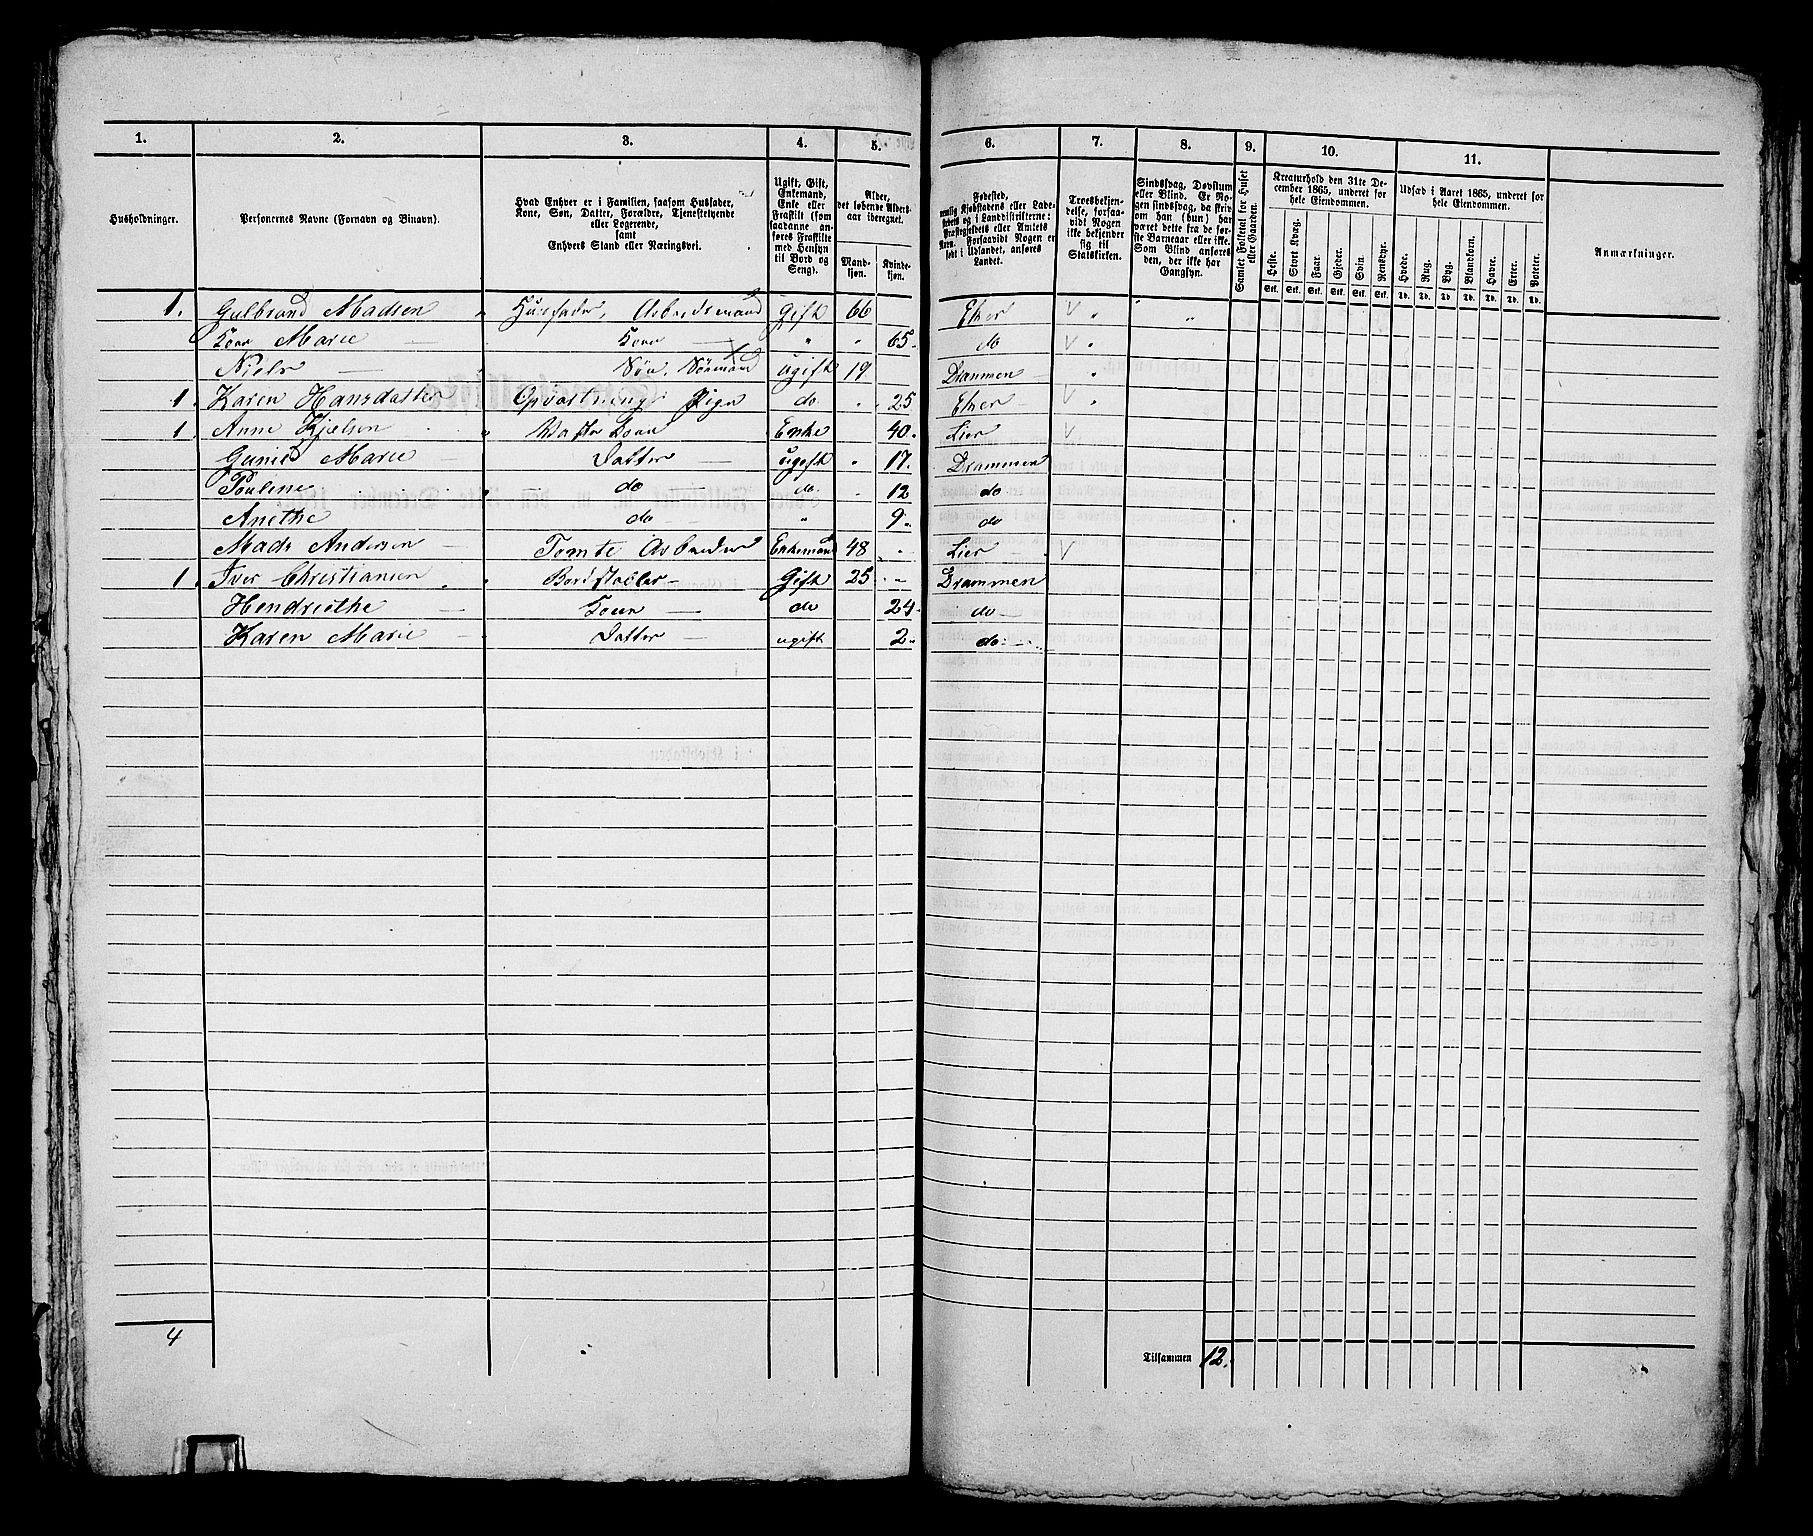 1. 2. 3. 4. 5. 6. 7. 8. 9. 10. 11.
Husholdninger.
Personernes Navne (Fornavn og Binavn).
Hvad Enhver er i Familien, saasom Husfader,
Kone, Søn, Datter, Forældre, Tjenestetyende
eller Logerende,
samt
Enhvers Stand eller Næringsvei.
Ugift, Gift,
Enkemand,
Enke eller
Fraskilt (som
saadanne an-
føres Fraskilte
med Hensyn
til Bord og
Seng).
Alder,
det løbende Alders-
aar iberegnet.
Mand-
kjøn.
Kvinde-
kjøn.
Fødested,
nemlig Kjøbstadens eller Lade-
stedets og i Landdistrikterne:
Præstegjeldets eller Amtets
Navn. Forsaavidt Nogen er
født i Udlandet, anføres
Landet.
Troesbekjen-
delse, forsaa-
vidt Nogen
ikke bekjender
sig til
Statskirken.
Sindssvag, Døvstum
eller Blind. Er No-
gen sindssvag, da skriv
om han (hun) har
været dette fra de før-
ste Barneaar eller ikke.
Som Blind anføres
den, der ikke har
Gangsyn.
Samlet Folketal for Huset
eller Gaarden.
Kreaturhold den 31te De-
cember 1865, underet for
hele Eiendommen.
Heste. Stort Kvæg. Faar. Gjeder. Svin. Rensdyr.
Stk. Stk. Stk. Stk. Stk. Stk.
Udsæd i Aaret 1865, underet for
hele Eiendommen.
Hvede. Rug. Byg. Blandkorn. Havre. Erter. Poteter.
Td. Td. Td. Td. Td. Td. Td.
Anmærkninger.
1. Gulbrand Madsen Husfader, Arbeidsmand gift 66 Eker
Kone Marie Kone " " 65. do
Niels Søn. Sømand ugift 19 Drammen
1. Karen Hansdatter Opvartnings Pige do " 25 Eker
1 Anne Kjelsen Enke 40. Lier
Gunild Marie Datter ugift " 17. Drammen
Pouline do do 12 do
Anethe do " 9. do
Mads Andersen Tomte Arbeider Enkemand 48 Lier
1. Iver Christiansen Bordstabler Gift 25 Drammen
Hendriethe Konen do 24. do
Karen Marie Datter ugift 2. do
4
Tilsammen 12.